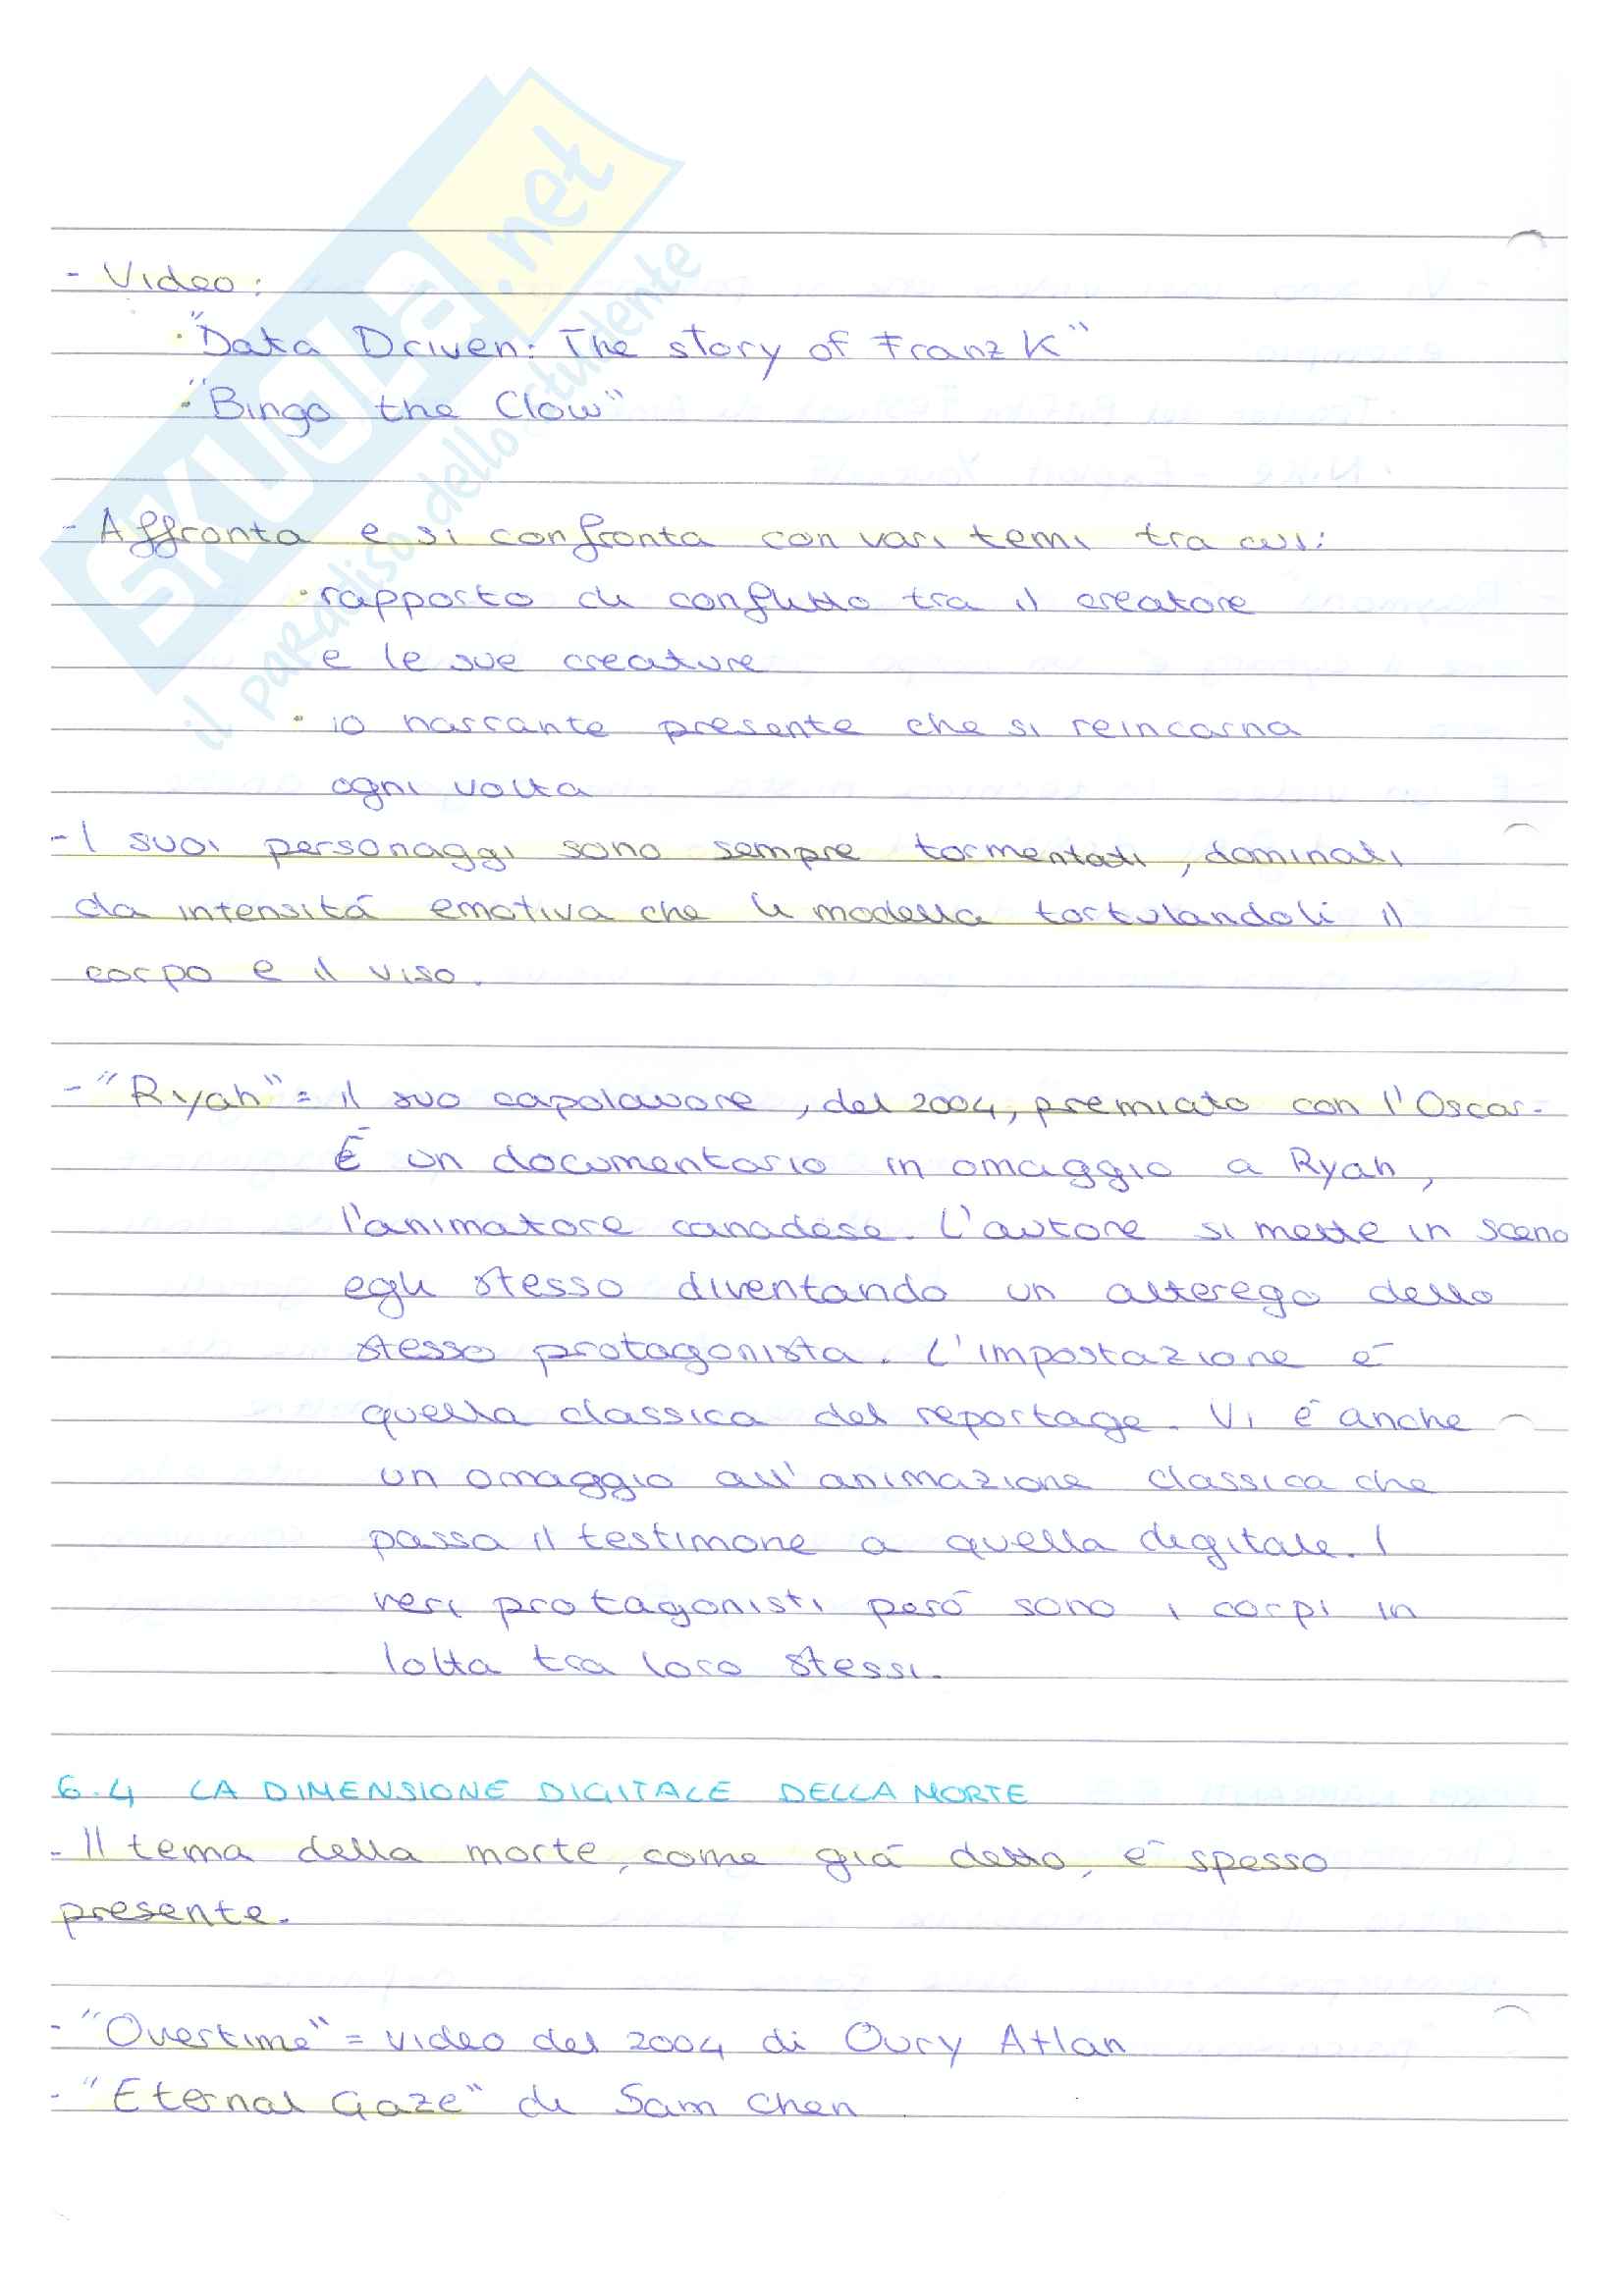 SKUOLA.net
il paradiso dello studente
- Video:
· "Data Driven: The story of Franz K"
· "Bingo the Clow"
- Affronta e si confronta con vari temi tra cui:
· rapporto di conflitto tra il creatore
e le sue creature
· io narrante presente che si reincarna
ogni volta
- I suoi personaggi sono sempre tormentati, dominati
da intensità emotiva che li modella torturandoli il
corpo e il viso.
- "Ryan" = il suo capolavore, del 2004, premiato con l'Oscar.
È un documentario in omaggio a Ryan,
l'animatore canadese. L'autore si mette in scena
egli stesso diventando un alterego dello
stesso protagonista. L'impostazione è
quella classica del reportage. Vi è anche
un omaggio all'animazione classica che
passa il testimone a quella digitale. I
veri protagonisti però sono i corpi in
lotta tra loro stessi.
6.4 LA DIMENSIONE DIGITALE DELLA MORTE
- Il tema della morte, come già detto, è spesso
presente.
- "Overtime" = video del 2004 di Oury Atlan
- "Eternal Gaze" di Sam Chen